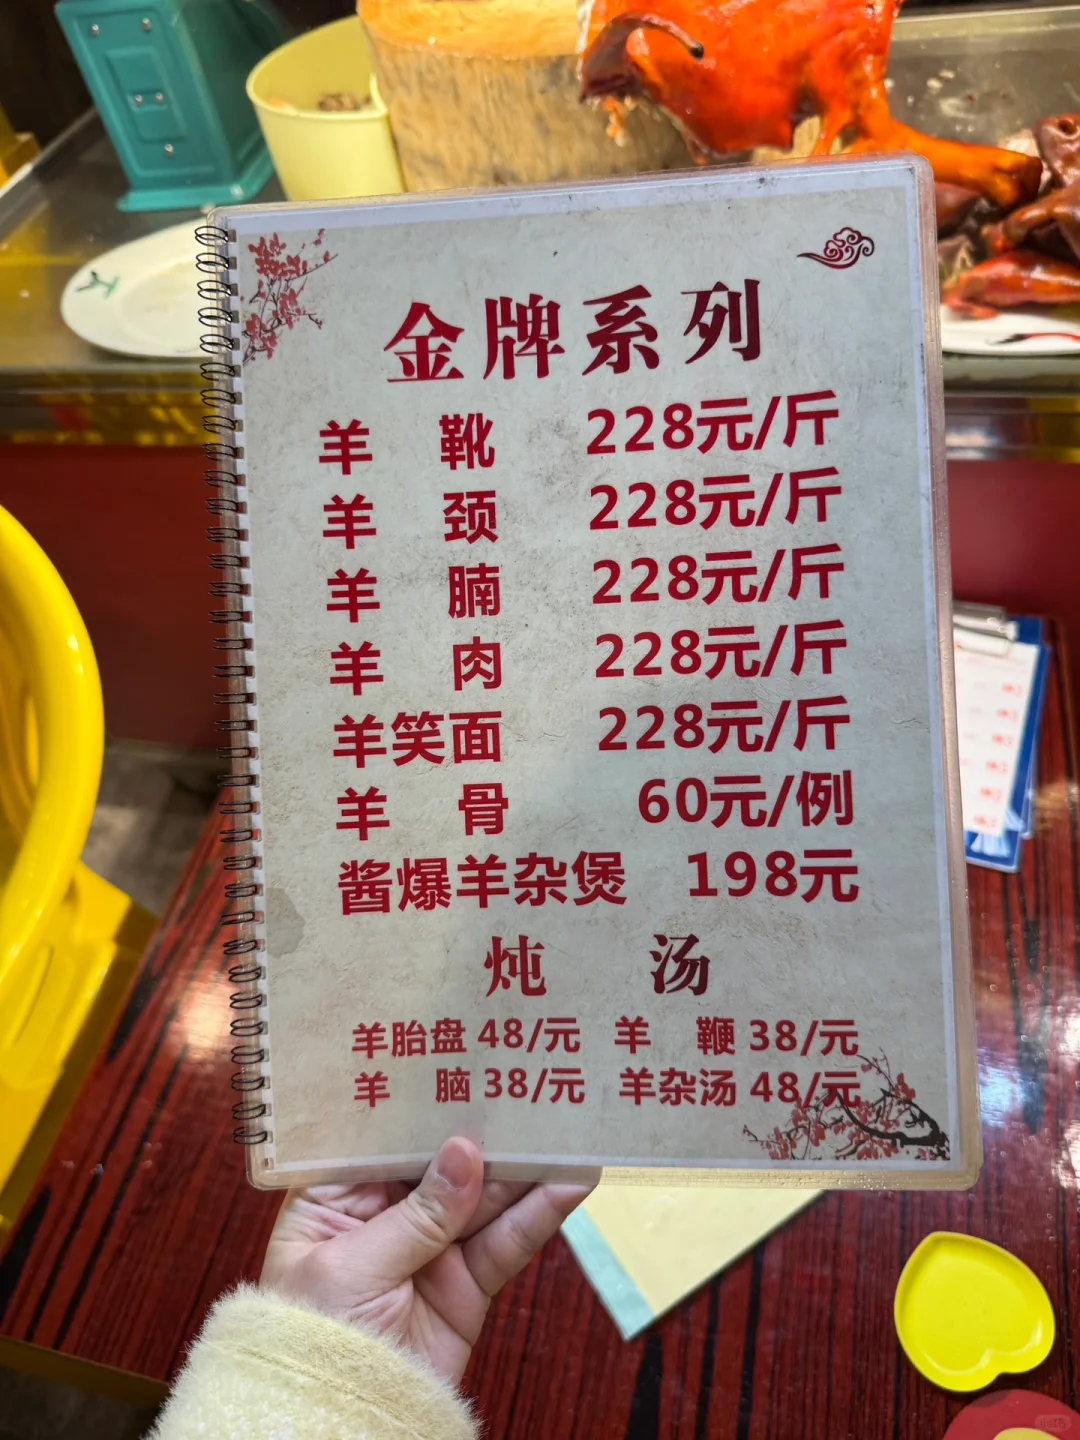 金牌系列
羊靴 228元/斤
羊颈 228元/斤
羊腩 228元/斤
羊肉 228元/斤
羊笑面 228元/斤
羊骨 60元/例
酱爆羊杂煲 198元
炖汤
羊胎盘 48/元 羊鞭 38/元
羊脑 38/元 羊杂汤 48/元